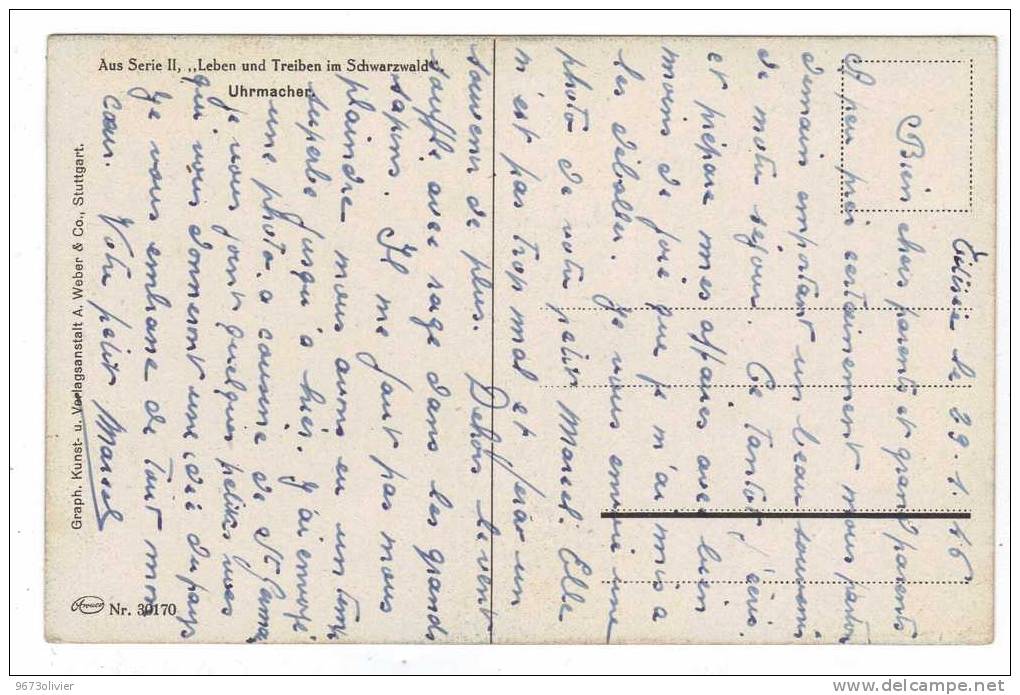 Aus Serie II, „Leben und Treiben im Schwarzwald“.
Uhrmacher.
Graph. Kunst- u. Verlagsanstalt A. Weber & Co., Stuttgart.
Nr. 30170
le 29.1.16
Bien chers parents et grand'parents
A peu près certainement nous partons
demain emportant un beau souvenir
de notre séjour. Ce tantôt j'écris
et prépare mes affaires avec bien
moins de joie que je n'ai mis à
les déballer. Je vous envoie une
photo de votre petit Marcel. Elle
n'est pas trop mal et fera un
souvenir de plus. Dehors le vent
souffle avec rage dans les grands
sapins. Il ne faut pas nous
plaindre nous avons eu un temps
superbe jusqu'à hier. J'ai envoyé
une photo à cousine de St
Je vous joint quelques petites vues
qui vous donneront une idée du pays
Je vous embrasse de tout mon
cœur. Votre petit Marcel
9673olivier
www.delcampe.net